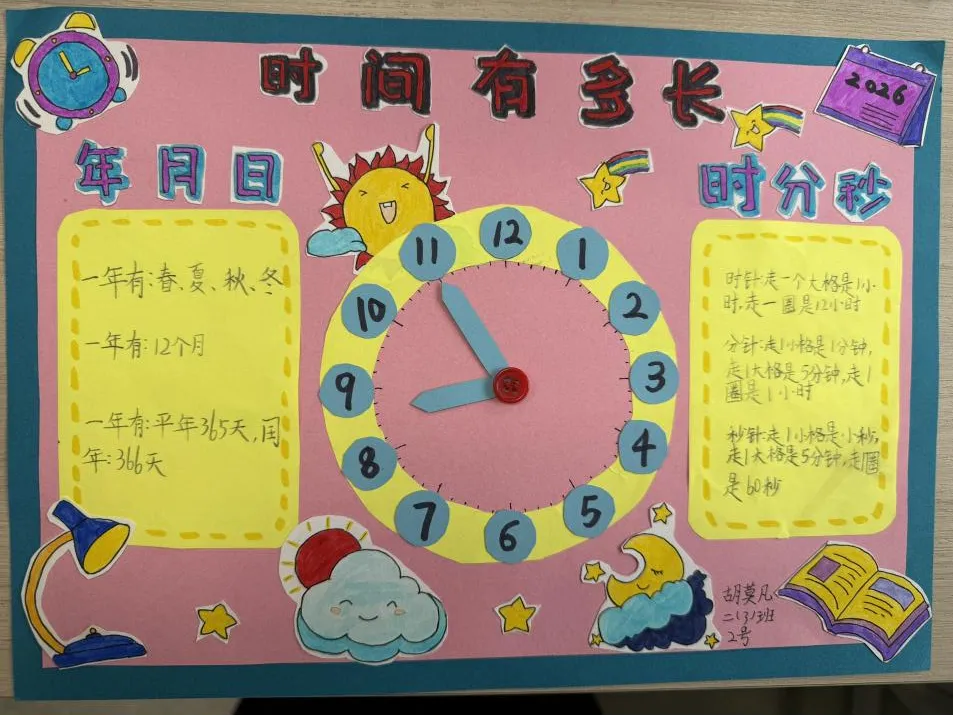 时间有多长
2026
年月日
时分秒
一年有:春、夏、秋、冬
一年有:12个月
一年有:平年365天,闰
年:366天
12
1
2
3
4
5
6
7
8
9
10
11
时针:走一个大格是1小
时,走一圈是12小时
分针:走1小格是1分钟,
走1大格是5分钟,走1
圈是1小时
秒针:走1小格是小秒,
走1大格是5分钟,走圈
是60秒
胡莫凡
二(3)班
2号